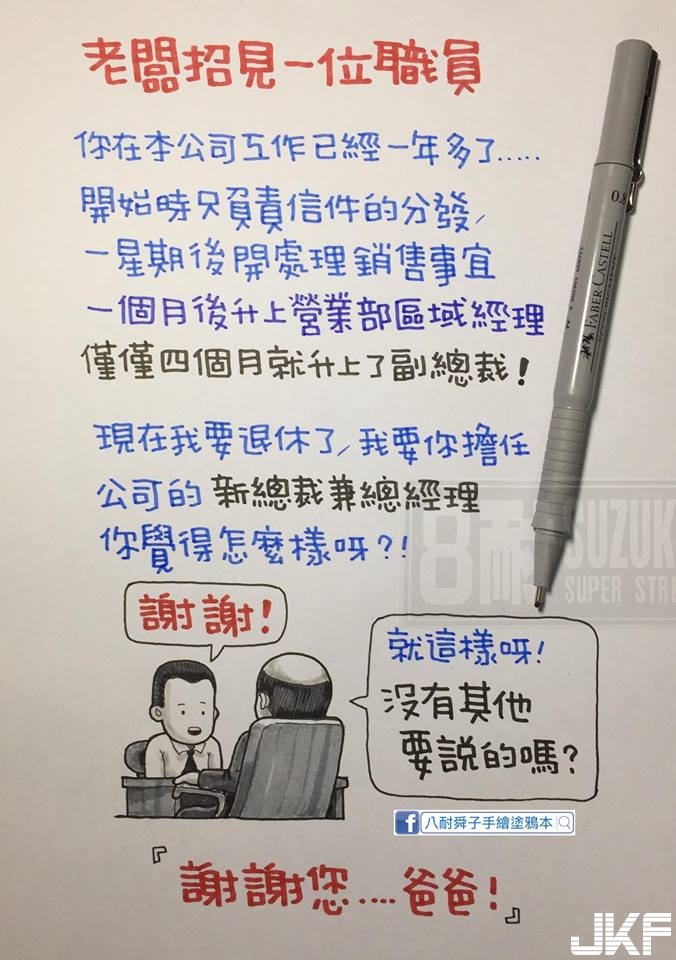 老闆招見一位職員
你在本公司工作已經一年多了.....
開始時只負責信件的分發,
一星期後開處理銷售事宜
一個月後升上營業部區域經理
僅僅四個月就升上了副總裁!
現在我要退休了,我要你擔任
公司的 新總裁兼總經理
你覺得怎麼樣呀?!
謝謝!
就這樣呀!
沒有其他
要説的嗎?
f 八耐舜子手繪塗鴉本
『謝謝您....爸爸!』
0.8
FABER-CASTELL
8耐
SUZUK
SUPER STRE
JKF